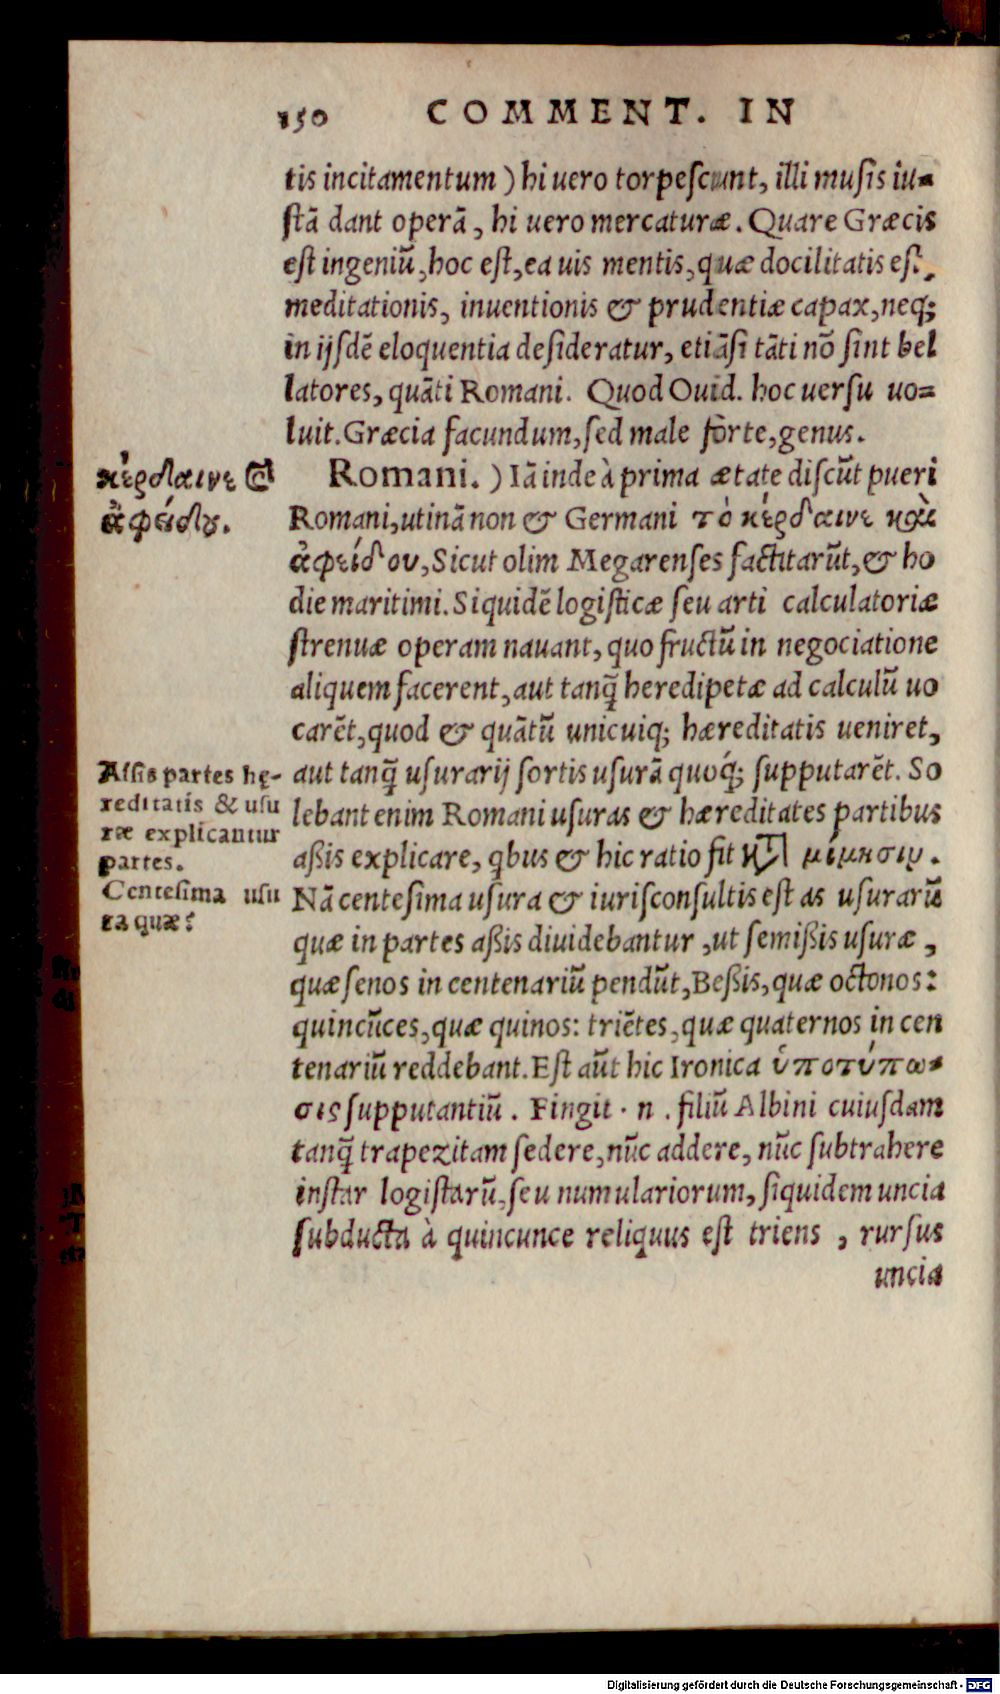 150 COMMENT. IN
tis incitamentum) hi uero torpescunt, illi musis iu-
stã dant operã, hi uero mercaturæ. Quare Græcis
est ingeniũ, hoc est, ea uis mentis, quæ docilitatis est,
meditationis, inuentionis & prudentiæ capax, neq;
in ijsdẽ eloquentia desideratur, etiãsi tãti nõ sint bel
latores, quãti Romani. Quod Ouid. hoc uersu uo-
luit. Græcia facundum, sed male forte, genus.
Romani.) Iã inde à prima ætate discũt pueri
Romani, utinã non & Germani τὸ κέρδαινε καὶ
ἀφείδου, Sicut olim Megarenses factitarũt, & ho
die maritimi. Siquidẽ logisticæ seu arti calculatoriæ
strenuæ operam nauant, quo fructũ in negociatione
aliquem facerent, aut tanq̃ heredipetæ ad calculũ uo
carẽt, quod & quãtũ unicuiq; hæreditatis ueniret,
aut tanq̃ usurarij sortis usurã quoq́; supputarẽt. So
lebant enim Romani usuras & hæreditates partibus
aßis explicare, qbus & hic ratio fit κατὰ μίμησιν.
Nã centesima usura & iurisconsultis est as usurarũ
quæ in partes aßis diuidebantur, ut semißis usuræ,
quæ senos in centenariũ pendũt, Beßis, quæ octonos:
quincũces, quæ quinos: triẽtes, quæ quaternos in cen
tenariũ reddebant. Est aũt hic Ironica ὑποτύπω-
σις supputantiũ. Fingit. n. filiũ Albini cuiusdam
tanq̃ trapezitam sedere, nũc addere, nũc subtrahere
instar logistarũ, seu numulariorum, siquidem uncia
subducta à quincunce reliquus est triens, rursus
uncia
κέρδαινε &
ἀφείδου.
Assis partes hę-
reditatis & usu
ræ explicantur
partes.
Centesima usu
ra quæ?
Digitalisierung gefördert durch die Deutsche Forschungsgemeinschaft - DFG